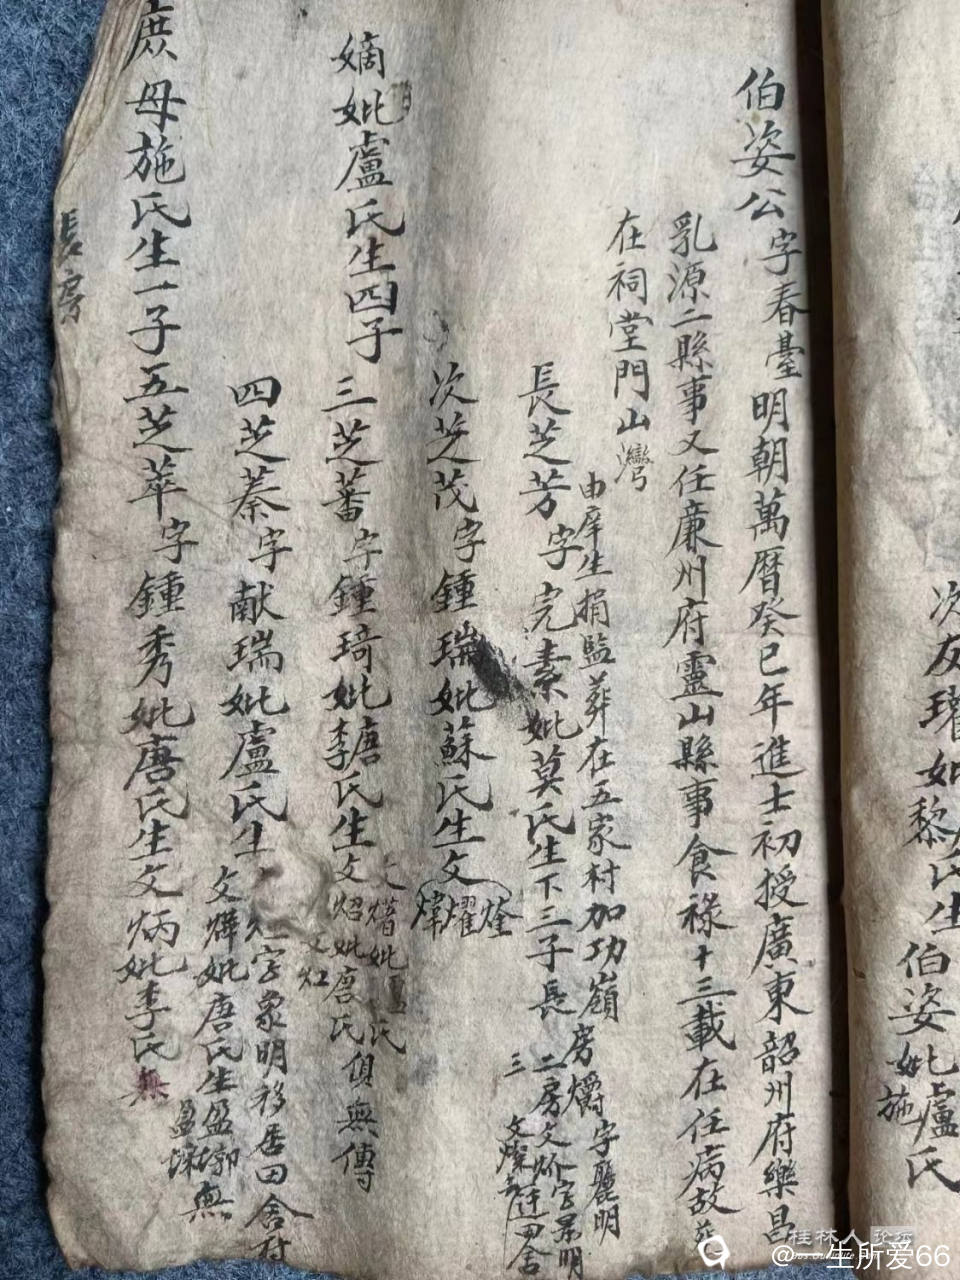 次友瓘妣黎氏生
伯姿妣盧氏
施
伯姿公字春臺明朝萬曆癸巳年進士初授廣東韶州府樂昌
乳源二縣事又任廉州府靈山縣事食祿十三載在任病故葬
在祠堂門山灣
由庠生捐監葬在五家村加功嶺
長芝芳字完素妣莫氏生下三子長房爝字麗明
二房文炌字景明
三文燦
次芝茂字鍾瑞妣蘇氏生文
烇
燿
煒
嫡妣盧氏生四子
三芝蕃字鍾琦妣李唐氏生文炤妣唐氏俱無傳
文熸妣氏
文灴
四芝蓁字献瑞妣盧氏生
字象明移居田舍村
文煒妣唐氏生盈墎無
盈
庶母施氏生一子五芝萃字鍾秀妣唐氏生文炳妣李氏無
長房
桂林人论坛
@一生所爱66